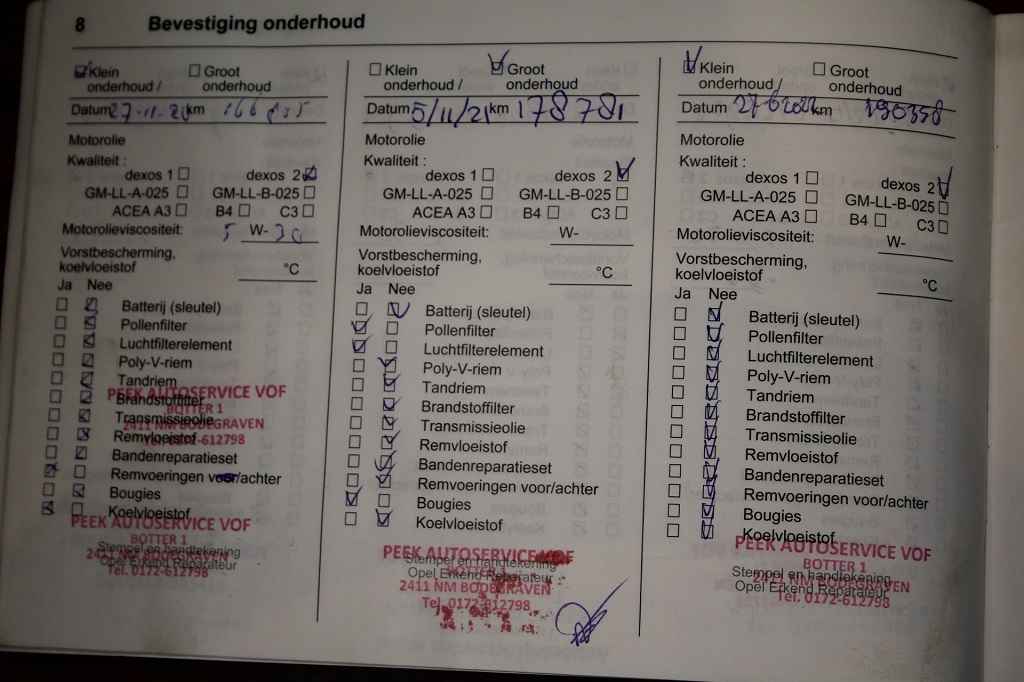 8 Bevestiging onderhoud
Klein onderhoud /
Groot onderhoud
Datum 27-11-20 km
Motorolie
Kwaliteit :
dexos 1 dexos 2
GM-LL-A-025 GM-LL-B-025
ACEA A3 B4 C3
Motorolieviscositeit: 5 W- 30
Vorstbescherming,
koelvloeistof °C
Ja Nee
Batterij (sleutel)
Pollenfilter
Luchtfilterelement
Poly-V-riem
Tandriem
PEEK AUTOSERVICE VOF
Brandstoffilter
BOTTER 1
Transmissieolie
2411 NM BODEGRAVEN
Remvloeistof
Tel. 0172-612798
Bandenreparatieset
Remvoeringen voor/achter
Bougies
Koelvloeistof
PEEK AUTOSERVICE VOF
BOTTER 1
Stempel en handtekening
2411 NM BODEGRAVEN
Opel Erkend Reparateur
Tel. 0172-612798
Klein onderhoud /
Groot onderhoud
Datum 5/11/21 km 178781
Motorolie
Kwaliteit :
dexos 1 dexos 2
GM-LL-A-025 GM-LL-B-025
ACEA A3 B4 C3
Motorolieviscositeit: W-
Vorstbescherming,
koelvloeistof °C
Ja Nee
Batterij (sleutel)
Pollenfilter
Luchtfilterelement
Poly-V-riem
Tandriem
Brandstoffilter
Transmissieolie
Remvloeistof
Bandenreparatieset
Remvoeringen voor/achter
Bougies
Koelvloeistof
PEEK AUTOSERVICE VOF
Stempel en handtekening
BOTTER 1
Opel Erkend Reparateur
2411 NM BODEGRAVEN
Tel. 0172-612798
Klein onderhoud/
Groot onderhoud
Datum 27-6-2022 km 190358
Motorolie
Kwaliteit :
dexos 1 dexos 2
GM-LL-A-025 GM-LL-B-025
ACEA A3 B4 C3
Motorolieviscositeit: W-
Vorstbescherming,
koelvloeistof °C
Ja Nee
Batterij (sleutel)
Pollenfilter
Luchtfilterelement
Poly-V-riem
Tandriem
Brandstoffilter
Transmissieolie
Remvloeistof
Bandenreparatieset
Remvoeringen voor/achter
Bougies
Koelvloeistof
PEEK AUTOSERVICE VOF
BOTTER 1
Stempel en handtekening
2411 NM BODEGRAVEN
Opel Erkend Reparateur
Tel. 0172-612798